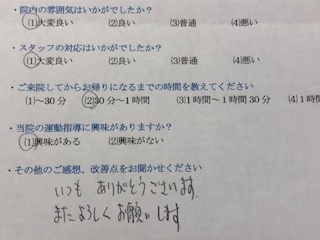 ・院内の雰囲気はいかがでしたか?
(1)大変良い (2)良い (3)普通 (4)悪い
・スタッフの対応はいかがでしたか?
(1)大変良い (2)良い (3)普通 (4)悪い
・ご来院してからお帰りになるまでの時間を教えてください
(1)～30分 (2)30分～1時間 (3)1時間～1時間30分 (4)1時
・当院の運動指導に興味がありますか?
(1)興味がある (2)興味がない
・その他のご感想、改善点をお聞かせください
いつも ありがとうございます。
またよろしくお願いします